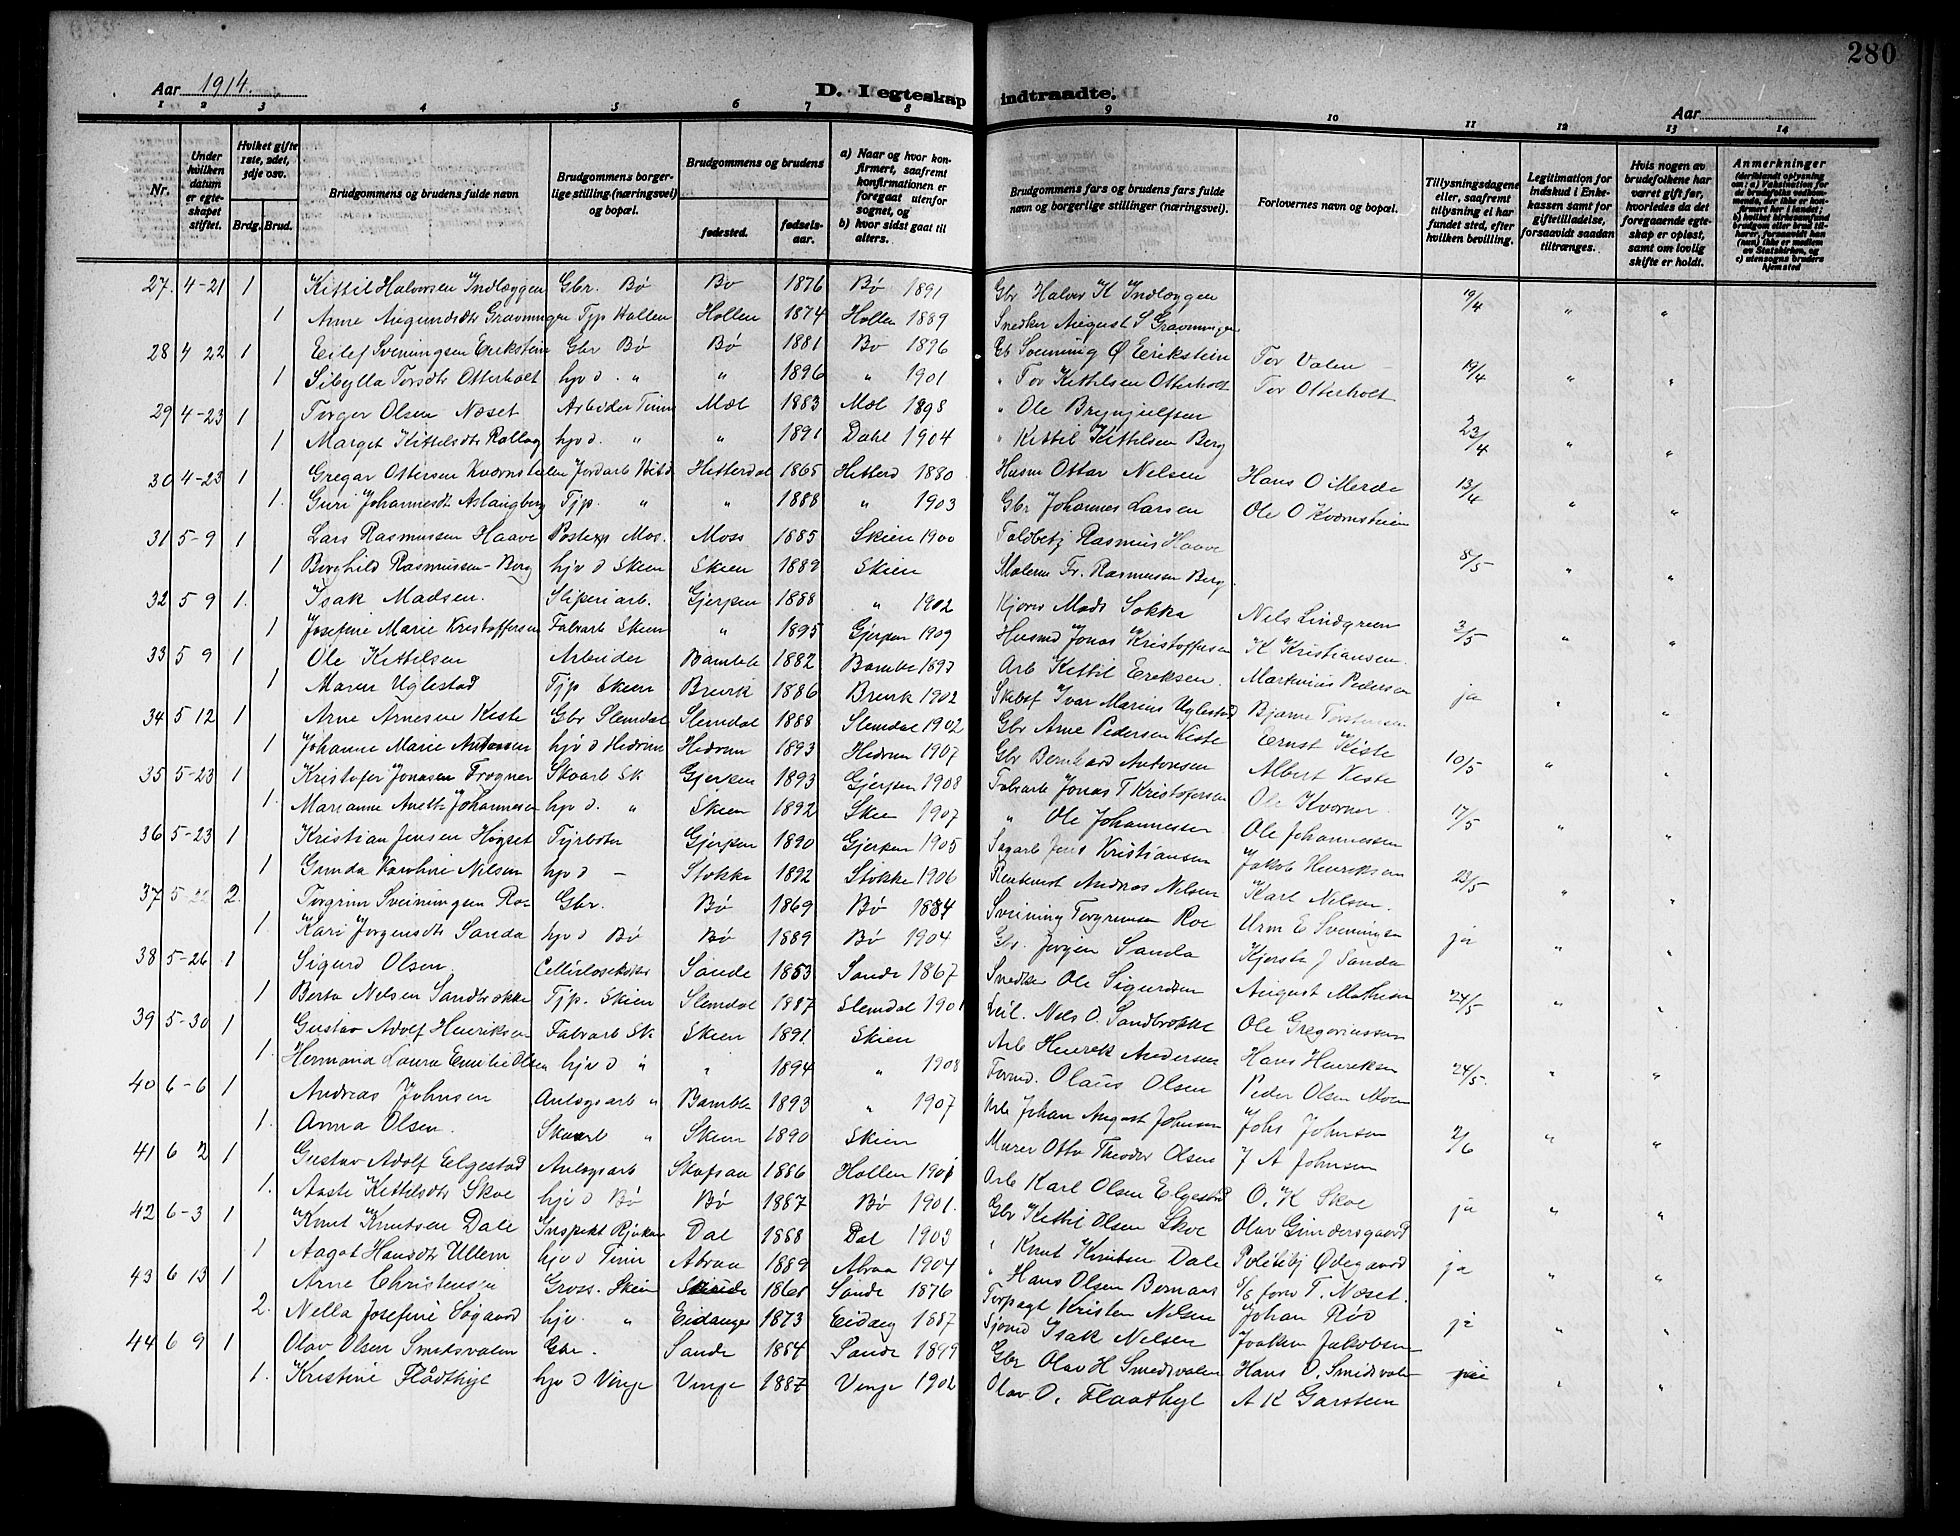 280
Aar 1914.
D. I egteskap indtraadte.
Aar
1 2 3 4 5 6 7 8 9 10 11 12 13 14
Nr.
Under hvilken datum er egteskapet stiftet.
Hvilket gifte 1ste, 2det, 3dje osv.
Brdg. Brud.
Brudgommens og brudens fulde navn
Brudgommens borgerlige stilling (næringsvei) og bopæl.
Brudgommens og brudens
fødested. fødselsaar.
a) Naar og hvor konfirmert, saafremt konfirmationen er foregaat utenfor sognet, og
b) hvor sidst gaat til alters.
Brudgommens fars og brudens fars fulde navn og borgerlige stillinger (næringsvei).
Forlovernes navn og bopæl.
Tillysningsdagene eller, saafremt tillysning ei har fundet sted, efter hvilken bevilling.
Legitimation for indskud i Enkekassen samt for giftetilladelse, forsaavidt saadan tiltrænges.
Hvis nogen av brudefolkene har været gift før, hvorledes da det foregaaende egteskap er opløst, samt om lovlig skifte er holdt.
Anmerkninger
27. 4-21 1 Kittil Halvorsen Indlæggen Gbr. Bø Bø 1876 Bø 1891 Gbr Halvor K Indlæggen 19/4
1 Anne Augundsdtr Gravningen Tjp Hollen Hollen 1874 Hollen 1889 Snedker August S Gravningen
28 4 22 1 Eilef Sveningsen Erikstein Gbr Bø Bø 1881 Bø 1896 Gb Svenning Ø Erikstein Tor Valen 19/4
1 Sibylla Torsdtr Otterholt hjv d. " " 1896 " 1901 " Tor Kittilsen Otterholt Tor Otterholt
29 4-23 1 Torger Olsen Næset Arbeider Tinn Mæl 1883 Mæl 1898 " Ole Brynjulfsen 23/4
1 Marget Kittelsdtr Rollag hjv d. " " 1891 Dahl 1904 " Kittil Kittilsen Berg
30 4-23 1 Gregar Ottersen Kvernstulen Jordarb Hitterdal 1865 Hitterd 1880 Husm Ottar Nelsen Hans O Merde 13/4
1. Guri Johannesdt Aslangberg Tjp. " " 1888 " 1903 Gbr Johannes Larsen Ole O Kvernstuen
31 5-9 1 Lars Rasmussen Haave Postexp Mos. Moss 1885 Skien 1900 Toldbetj Rasmus Haave 8/5
1 Borghild Rasmussen-Berg hjv d Skien Skien 1889 Skien Malerm Fr. Rasmussen Berg.
32 5 9 1. Isak Madsen. Sliperiarb. Gjerpen 1888 " 1902 Mads Sokka Nils Lindgreen 3/5
1 Josefine Marie Kristoffersen Fabarb Skien " 1895 Gjerpen 1909 Husmd Jonas Kristoffersen K Kristiansen.
33 5 9 1 Ole Kittelsen Arbeider Bamble 1882 Bambe 1897 Arb Kittil Eriksen. Markvius Pedersen ja
1 Maren Uglestad Tjp Skien Brevik 1886 Brevik 1902 Skibsf Ivar Marius Uglestad Bjarne Torstensen
34 5 12 1 Arne Arnesen Kiste Gbr Slemdal Slemdal 1888 Slemdal 1902 Gbr Arne Pedersen Kiste Ernst Kiste 10/5
1 Johanne Marie Antonsen hjv d Hedrum Hedrum 1893 Hedrum 1907 Gbr Bernhard Antonsen Albert Kiste
35 5-23 1 Kristofer Jonasen Trogner Skoarb Sk Gjerpen 1893 Gjerpen 1908 Fabarb Jonas T Kristofersen Ole Kværner 17/5
1. Marianne Anette Johannesen hjv d. " Skien 1892 Skien 1907 " Ole Johannessen Ole Johannessen
36 5-23 1 Kristian Jensen Høgset Fyrbøter Gjerpen 1890 Gjerpen 1905 Sagarb Jens Kristiansen Jakob Henriksen 23/5
1 Gunda Karoline Nilsen hjv d - Stokke 1892 Stokke 1906 Andreas Nilsen Karl Nilsen.
37 5-22 2. Torgrim Sveinungsen Roe Gbr. Bø 1869 Bø 1884 Sveinung Torgrimsen Roe Urm E Sveinungsen ja
1. Kari Jørgensdtr Sanda hjv d Bø Bø 1889 Bø 1904 Gbr. Jørgen Sanda Kjersti J Sanda
38 5-26 1 Sigurd Olsen Cellulosearbeider Sande 1853 Sande 1867 Snedker Ole Sigurdsen August Mathisen 24/5
1 Berta Nelsen Sandbrække Tjp. Skien Slemdal 1887 Slemdal 1901 Leil. Nels O. Sandbrække Ole Gregoriussen
39 5-30 1 Gustav Adolf Henriksen Fabarb Sk. Skien 1891 Skien Arb Henrik Andersen Hans Henriksen 24/5.
1. Hermana Laura Emilie Olsen hjv d " " 1894 " 1908 Formd. Olaus Olsen Peder Olsen Moen
40 6-6 1 Andreas Johnsen Anlægsarb " Bamble 1893 " 1907 Arb Johan August Johnsen Johs Johnsen 2/6
1. Anna Olsen. Skoarb " Skien 1890 Skien Murer Otto Theodor Olsen J A Johnsen
41 6 2 1 Gustav Adolf Elgestad Anlægsarb Skafsaa 1886 Hollen 1901 Arb Karl Olsen Elgestad O. K Skoe ja
1. Aaste Kittelsdtr Skoe hjv d Bø Bø 1887 Bø 1901. Gbr Kittil Olsen Skoe Olav Gundersgaard
42 6-3 1 Knut Knutsen Dale Inspekt Rjukan Dal 1888 Dal 1903 " Knut Knutsen Dale Politibtj Ødegaard ja
1 Aagot Hansdtr Ullern hjv d Tinn Abraa 1889 Abraa 1904 " Hans Olsen Bernaas T. Næset.
43 6 13 1 Arne Christensen Gross. Skien Skiude 1861 Sande 1876 Kristen Nilsen Johan Røo ja
2. Nella Josefine Høgaard hjv. " Eidanger 1873 Eidang 1887 Sjømd Isak Nilsen Joakim Jakobsen
44 6 9 1 Olav Olsen Smedsvalen Gbr. Sande 1884 Sande 1899 Gbr Olav H Smedsvalen Hans O. Smedsvalen
1. Kristine Flådthyl hjv d Vinje Vinje 1887 Vinje 1902 Olav O. Flaathyl A K Garstein